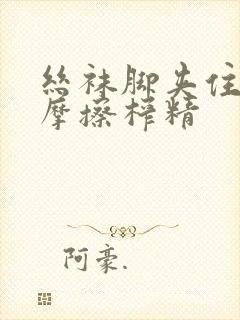 丝袜脚夹住
摩擦榨精
阿豪.